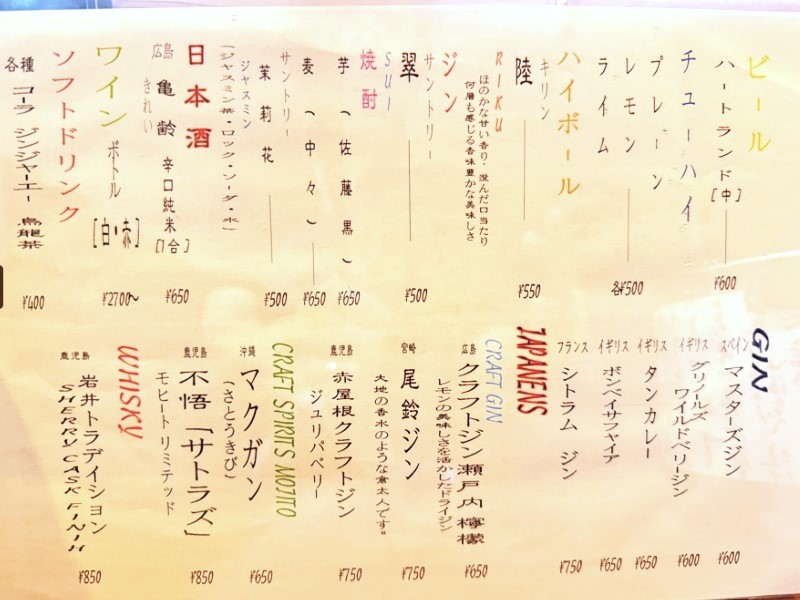 ビール
ハートランド[中] ¥600
チューハイ
プレーン
レモン 各¥500
ライム
ハイボール
キリン
陸 ¥550
RIKU
ほのかな甘い香り、澄んだ口当たり
何層も感じる香味豊かな美味しさ
ジン
サントリー
翠 ¥500
SUI
焼酎
芋（佐藤黒） ¥650
麦（中々） ¥650
サントリー
茉莉花 ¥500
ジャスミン
(ジャスミン茶・ロック・ソーダ・水)
日本酒
広島 亀齢 辛口純米[1合] ¥650
きれい
ワイン ボトル[白・赤] ¥2700～
ソフトドリンク
各種 コーラ ジンジャーエー 烏龍茶 ¥400
GIN
スペイン マスターズジン ¥600
イギリス グリノールズ
ワイルドベリージン ¥600
イギリス タンカレー ¥650
イギリス ボンベイサファイア ¥650
フランス シトラム ジン ¥750
JAPANENS
CRAFT GIN
広島 クラフトジン 瀬戸内 檸檬 ¥650
レモンの美味しさを活かしたドライジン
宮崎 尾鈴ジン ¥750
大地の香水のような東太人です。
鹿児島 赤屋根クラフトジン ¥750
ジュリパベリー
CRAFT SPIRITS MOJITO
沖縄 マクガン ¥650
(さとうきび)
鹿児島 不悟「サトラズ」 ¥850
モヒート リミテッド
WHISKY
鹿児島 岩井トラディション ¥850
SHERRY CASK FINIH